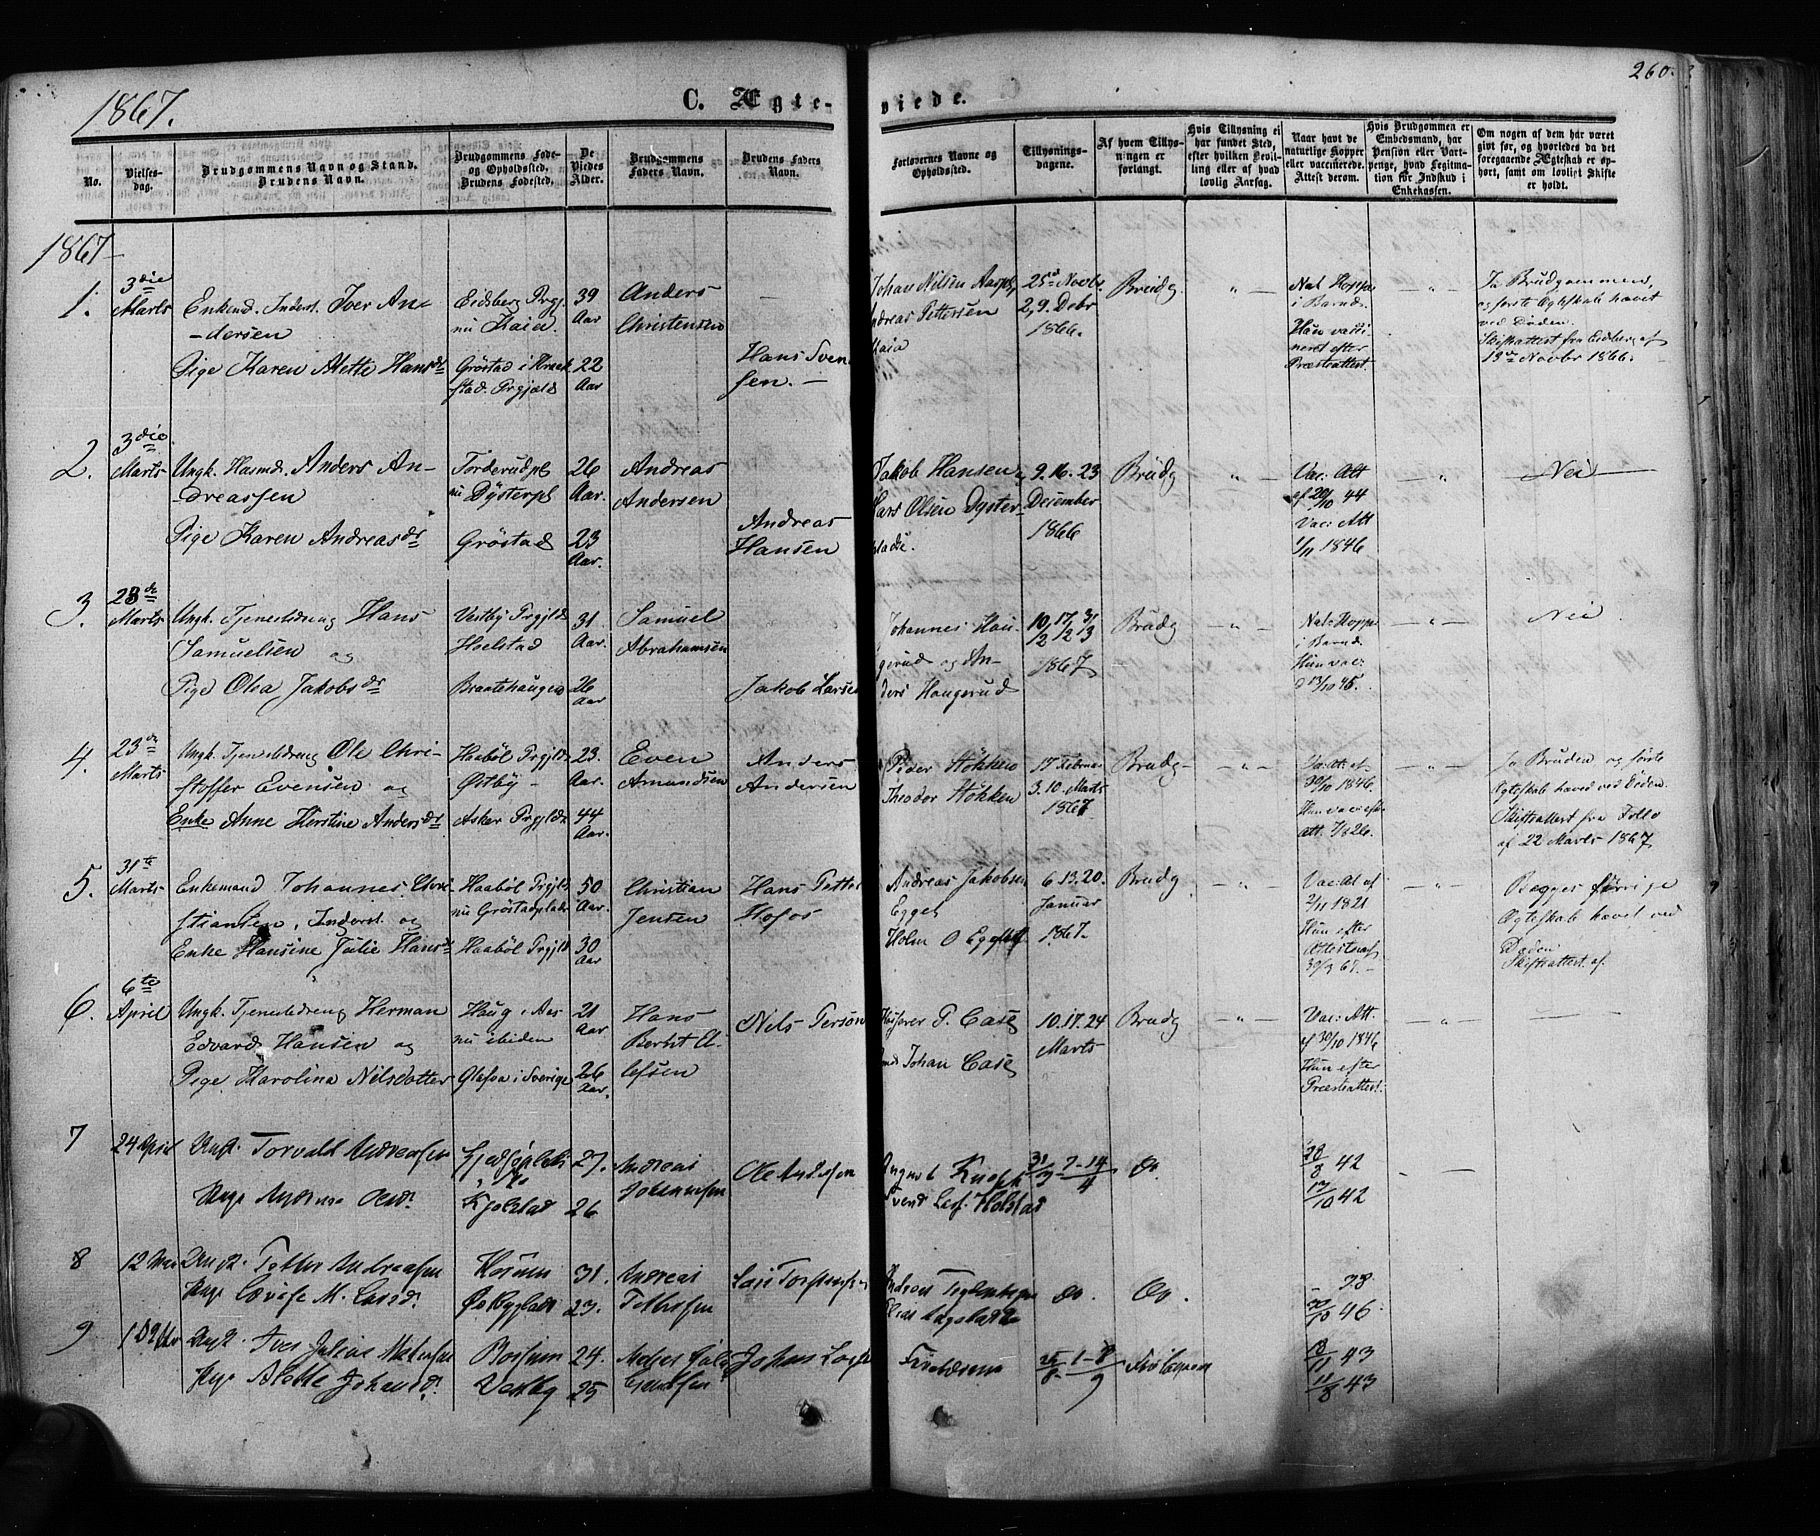 260.
1867.
C. Ægte-
viede.
No.
Vielses-
dag.
Brudgommens Navn og Stand.
Brudens Navn.
Brudgommens Føde-
og Opholdssted,
Brudens Fødested,
De
Viedes
Alder.
Brudgommens
Faders Navn.
Brudens Faders
Navn.
Forlovernes Navne og
Opholdssted.
Tillysnings-
dagene.
Af hvem Tillys-
ningen er
forlangt.
Hvis Tillysning ei
har fundet Sted,
efter hvilken Bevil-
ling eller af hvad
lovlig Aarsag.
Naar havt de
naturlige Kopper
eller vaccinerede.
Attest derom.
Hvis Brudgommen er
Embedsmand, har
Pension eller Vart-
penge, hvad Legitima-
tion for Indskud i
Enkekassen.
Om nogen af dem har været
gift før, og hvorledes da det
foregaaende Ægteskab er op-
hørt, samt om lovligt Skifte
er holdt.
1867
1.
3die
Marts
Enkem. Inderst. Iver An-
dersen
Pige Karen Alette Hansdr
Eidsberg Prgj.
nu Kaia
Grøstad i Kraak-
stad Prgjæld
39
Aar
22
Aar
Anders
Christensen
Hans Sven-
sen.
Johan Nilsen
Andreas Pettersen
Kaia
25de Novbr
2, 9. Debr
1866.
Brudg
Nat. Kopper
i Barnd.
Hun vacci-
neret efter
Præsteattest.
Ja Brudgommen,
og første Egteskab hævet
ved Døden.
Skifteattest fra Eidsberg af
19de Novbr 1866.
2.
3die
Marts
Ungk. Husmd. Anders An-
dreassen
Pige Karen Andreasdr
Torderudpl
nu Dysterpl
Grøstad
26
Aar.
23
Aar.
Andreas
Andersen
Andreas
Hansen
Jakob Hansen
Lars Olsen Dyster-
9. 16. 23
December
1866
Brudg
Vac: Att
af 20/10 44
Vac: Att
1/11 1846
Nei
3.
23de
Marts
Ungk. Tjenestedreng Hans
Samuelsen og
Pige Olea Jakobsdr
Vestby Prgjld
Hoelstad
Braatehaugen
31
Aar.
26
Aar
Samuel
Abrahamsen
Jakob Larsen
Johannes Hau-
gerud og An-
ders Haugerud
10/2 17/2 31/3
1867
Brudg
Nat. Koppe
i Barnd.
Hun vac:
13/10 45.
Nei
4.
23de
Marts
Ungk. Tjenestedreng Ole Chri-
stoffer Evensen og
Enke Anne Kirstine Andersdr
Haabøl Prgjld
Østby
Asker Prgjld
23.
Aar.
44
Aar.
Even
Amundsen
Anders
Andersen
Peder Støkken
Theodor Støkken
17. Februar
3. 10. Marts
1867
Brudg
Vac. Att. af
30/10 1846.
Hun vac: efter
Att. 7/8 26.
Ja Bruden og første
Egteskab hæved ved Døden.
Skifteattest fra Follo
af 22 Marts 1867
5.
31te
Marts
Enkemand Johannes Chri-
stiansen, Inderst. og
Enke Hansine Julie Hansdr
Haabøl Prgjld
nu Grøstadplads
Haabøl Prgjld
50
Aar.
30
Aar
Christian
Jensen
Hans Petter
Hofos
Andreas Jakobsen
Egget
Holm O Egget
6. 13. 20.
Januar
1867.
Brudg
Vac: At af
2/11 1821
Hun efter
Attest af
30/3 67.
Begges forrige
Egteskab hævet ved
Døden.
Skifteattest af.
6.
6te
April
Ungk. Tjenestedreng Herman
Edvard Hansen og
Pige Karolina Nilsdotter
Haug i Aas
nu ibiden
Glafva i Sverige
21
Aar
26
Aar.
Hans
Berht
Nils Person
P. Case
Johan Case
10. 17. 24
Marts
Brudg
Vac: Att.
af 30/10 1846
Hun efter
Præsteattest
7
24 April
Ungk. Torvald Andreassen
Kjolstad
27.
26
Andreas
Johannessen
Ole Andersen
August
31/3 - 7 - 14/4
do
28/8 42
13/10 42
8
12 Mai
Ungk. Petter Andreassen
Pige Lovise M. Larsd.
31.
23.
Andreas
Pettersen
Lars Torstensen
do.
do.
38
20/10 46.
9
Ungk. Iver Julius
Pige Alette Johansd.
Vestby
24.
25
Johan
Forloverne
25/8 - 1 - 8/9
18/11 43
11/8 43